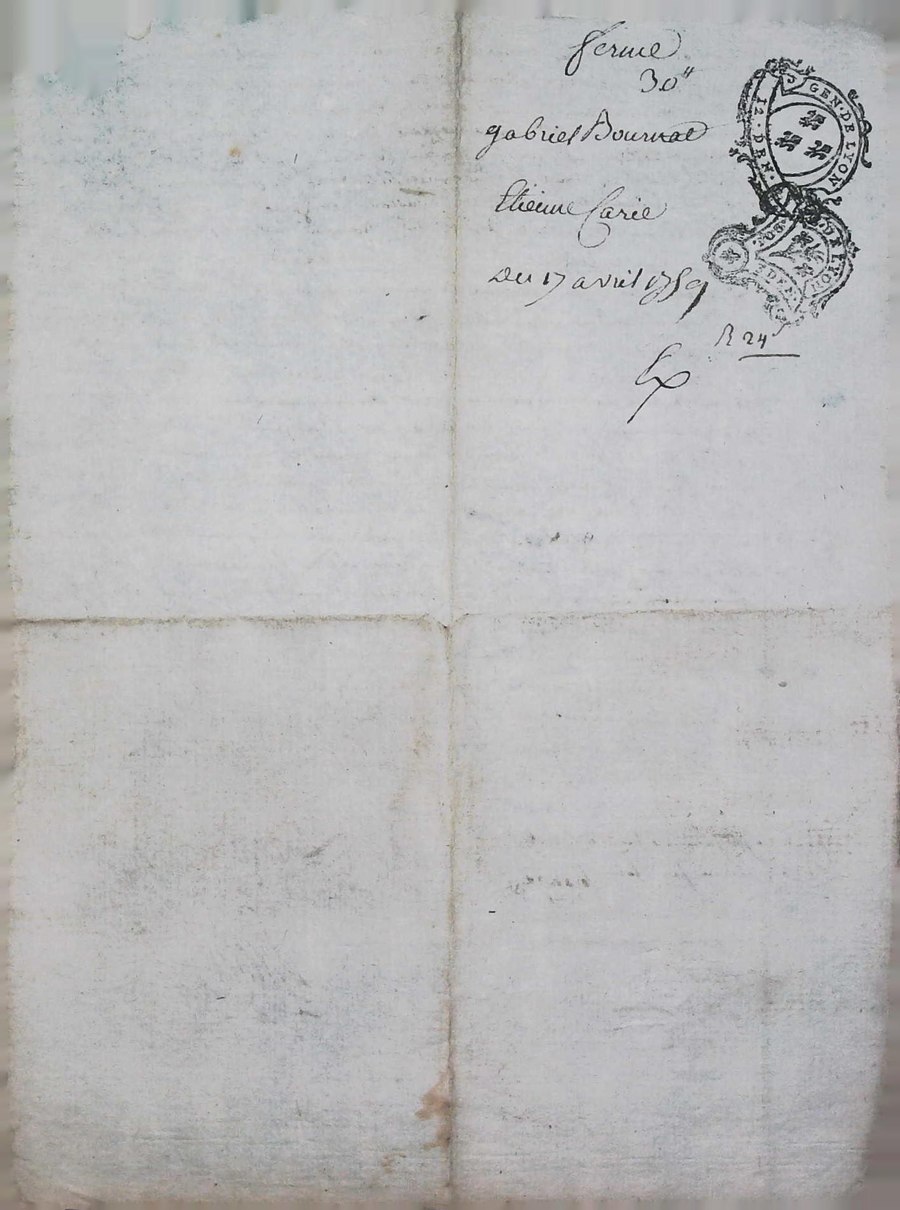 ferme
30"
gabriel Bournat
Etienne Carie
Du 17 avril 1759
R 24ˢ
GEN·DE·LYON
12 DEN·
DE LYON
2 DEN·